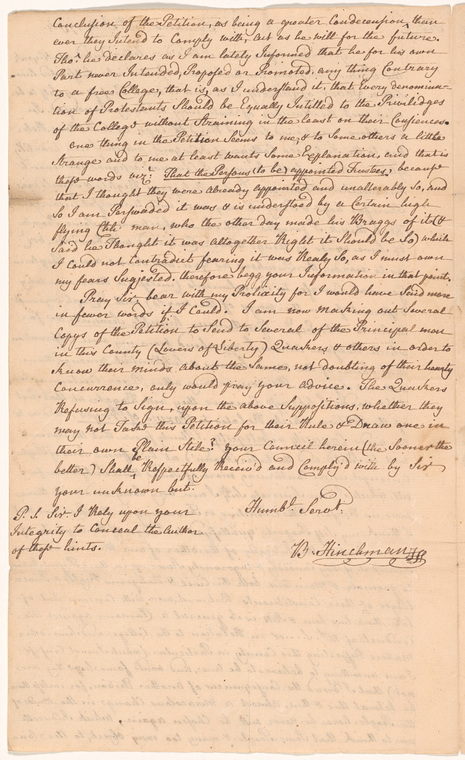 Conclusion of the Petition, as being a greater Condecension, than
ever they Intend to Comply with, Act as he will for the future,
Tho.' he declares as I am lately Informed that he for his own
Part never Intended, Proposed or Promoted, any thing Contrary
to a free College, that is, as I understand it, that Every Denomina-
tion of Protestants Should be Equally Intitled to the Priviledges
of the College without Straining in the least on their Consciences.
One thing in the Petition Seems to me, & to Some others a little
Strange and to me at least wants Some Explanation, and that is
these words viz.t That the Persons (to be) appointed Trustees, because
that I thought they were already appointed and unalterably So, and
So I am Perswaded it was & is understood by a Certain high
flying Chh: man, who the other day made his Braggs of it (&
said he Thought it was altogether Right it Should be So) which
I could not Contradict fearing it was Realy So, as I must own
my fears Sugjested, therefore begg your Information in that point.
Pray Sir, bear with my Prolixity for I would have Said more
in fewer words if I Could. I am now making out Several
Copys of the Petition to Send to Several of the Principal men
in this County (Lovers of Liberty) Quakers & others in order to
know their minds about the Same, not doubting of their hearty
Concurrence, only would pray your Advice. The Quakers
Refusing to Sign, upon the above Suppositions, whether they
may not Take this Petition for their Rule & Draw one in
their own Plain Stile? your Council herein (the Sooner the
better) Shall be Respectfully Receiv'd and Comply'd with by Sir
your unknown but
Humbl. Servt.
P. S. Sir I Rely upon your
Integrity to Conceal the Author
of these hints.
B Hinchman